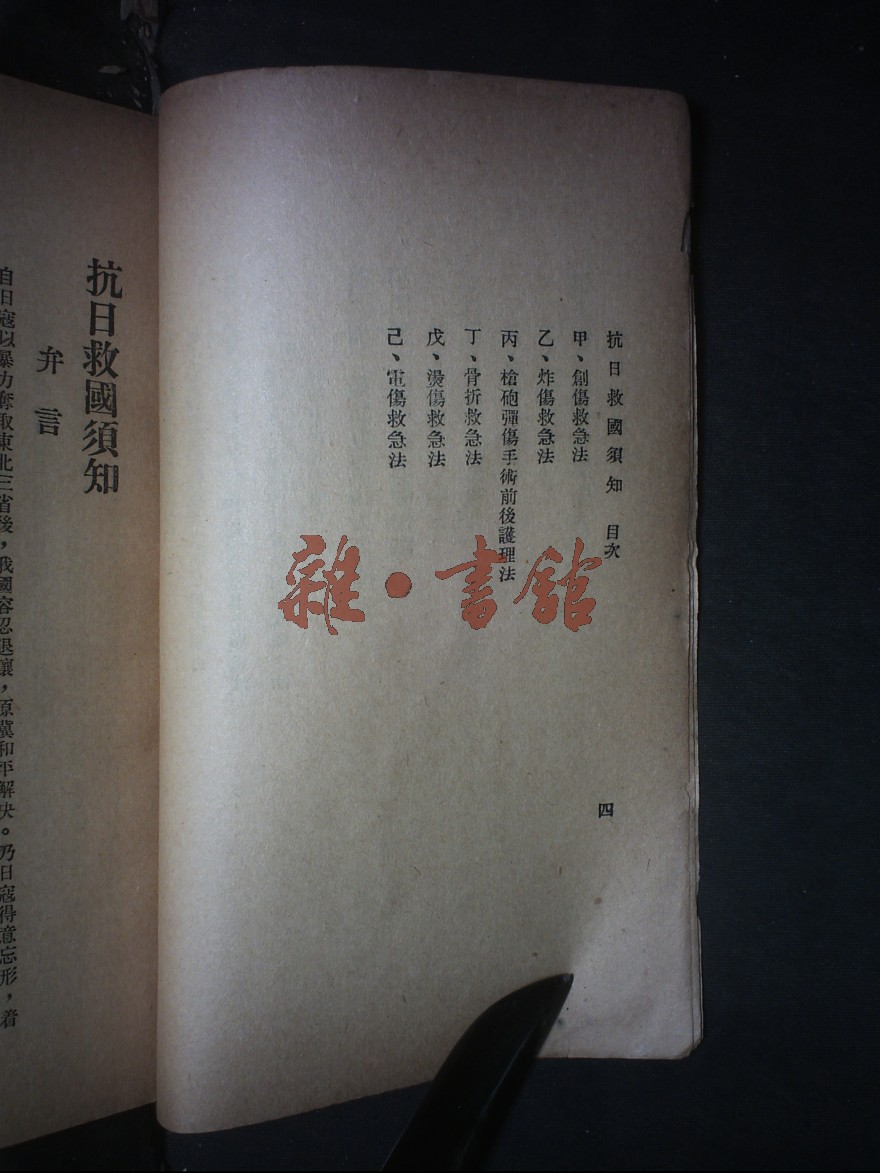 抗日救國須知　目次
甲、創傷救急法
乙、炸傷救急法
丙、槍砲彈傷手術前後護理法
丁、骨折救急法
戊、燙傷救急法
己、電傷救急法
四
雜·書館
抗日救國須知
弁言
自日寇以暴力奪取東北三省後，我國容忍退讓，原冀和平解決。乃日寇得意忘形，着